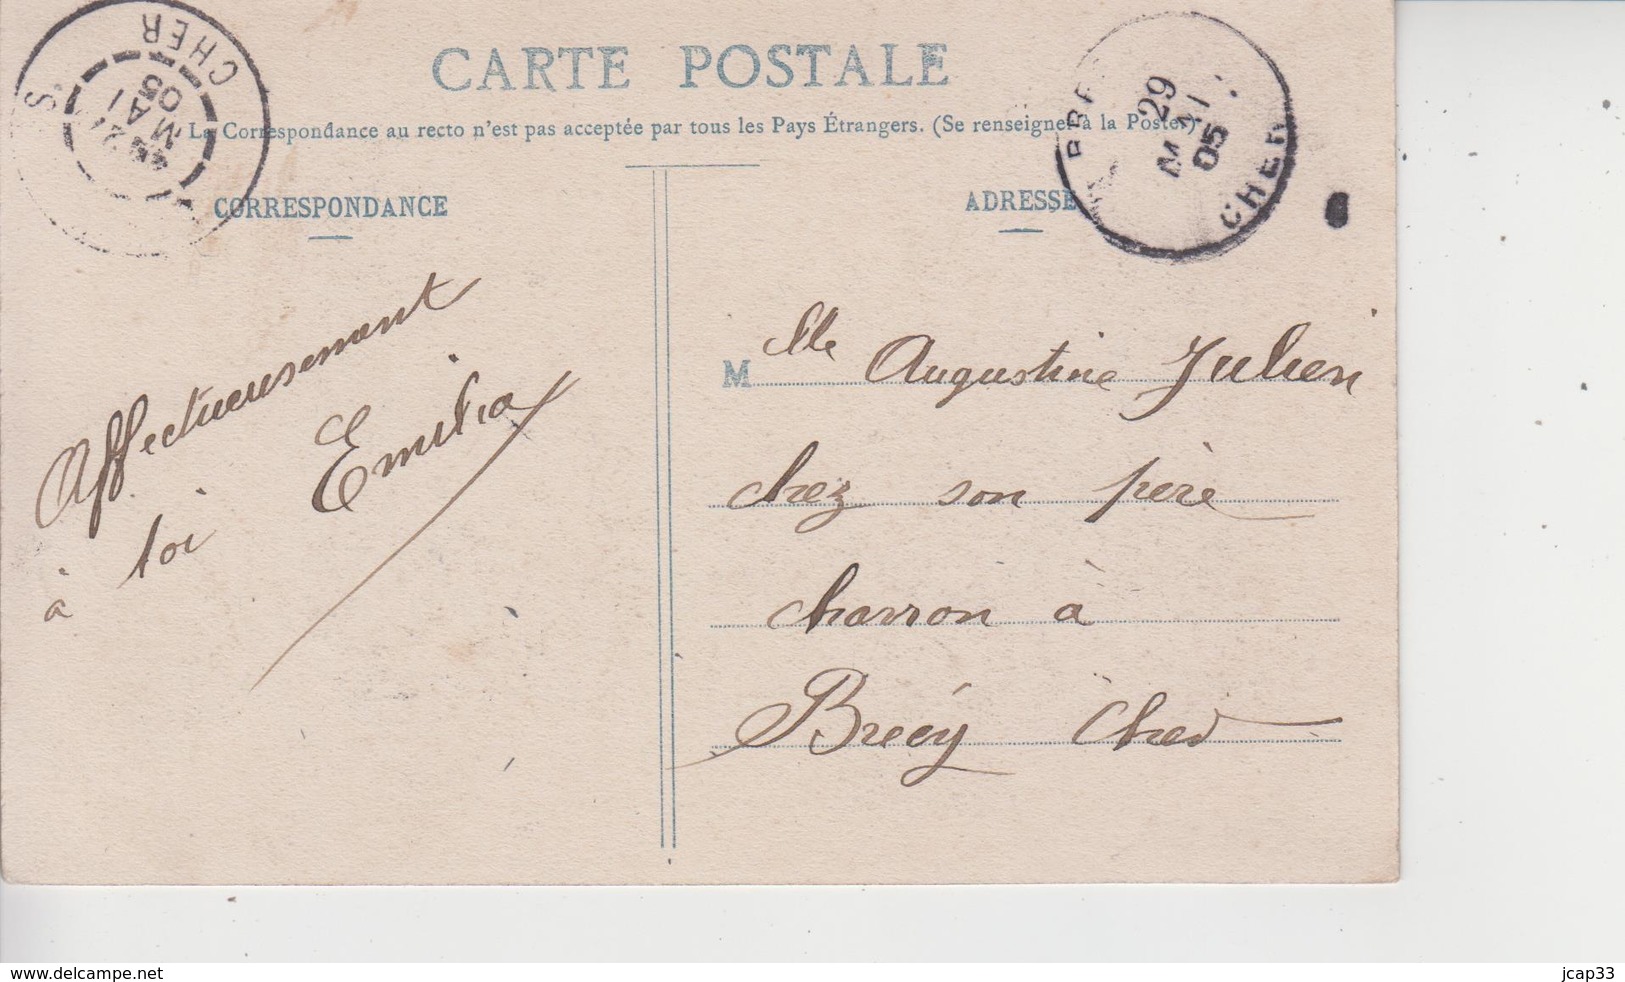 CHER
MAI
05
S
CARTE POSTALE
29
MAI
05
CHER
La Correspondance au recto n'est pas acceptée par tous les Pays Étrangers. (Se renseigner à la Poste.)
CORRESPONDANCE
ADRESSE
Affectueusement
à toi Emilia
Mlle Augustine Julien
chez son père
charron à
Brécy Cher
www.delcampe.net
jcap33